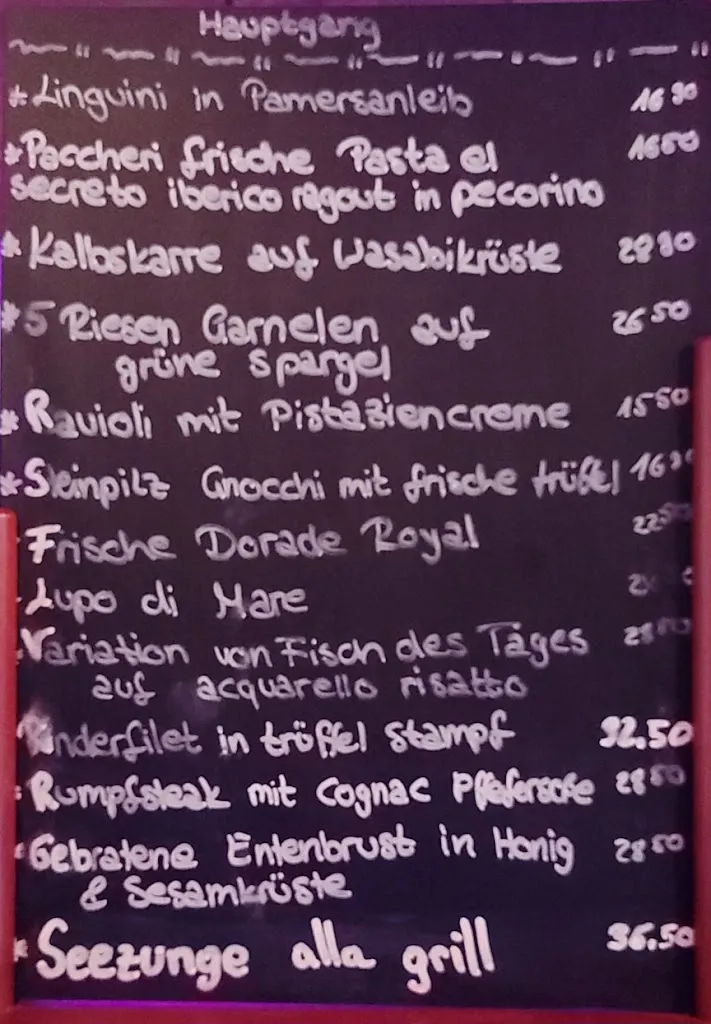 Hauptgang
* Linguini in Pamersanleib 16 90
* Paccheri frische Pasta el 16 50
secreto iberico ragout in pecorino
* Kalbskarre auf Wasabikrüste 28 90
* 5 Riesen Garnelen auf 26 50
grüne Spargel
* Ravioli mit Pistaziencreme 15 50
* Steinpilz Gnocchi mit frische trüffel
Frische Dorade Royal
Lupo di Mare
Variation von Fisch des Tages
auf acquarello risatto
Rinderfilet in tröffel Stampf 32.50
Rumpfsteak mit Cognac 28 50
Gebratene Entenbrust in Honig 28 50
& Sesamkrüste
* Seezunge alla grill 36.50